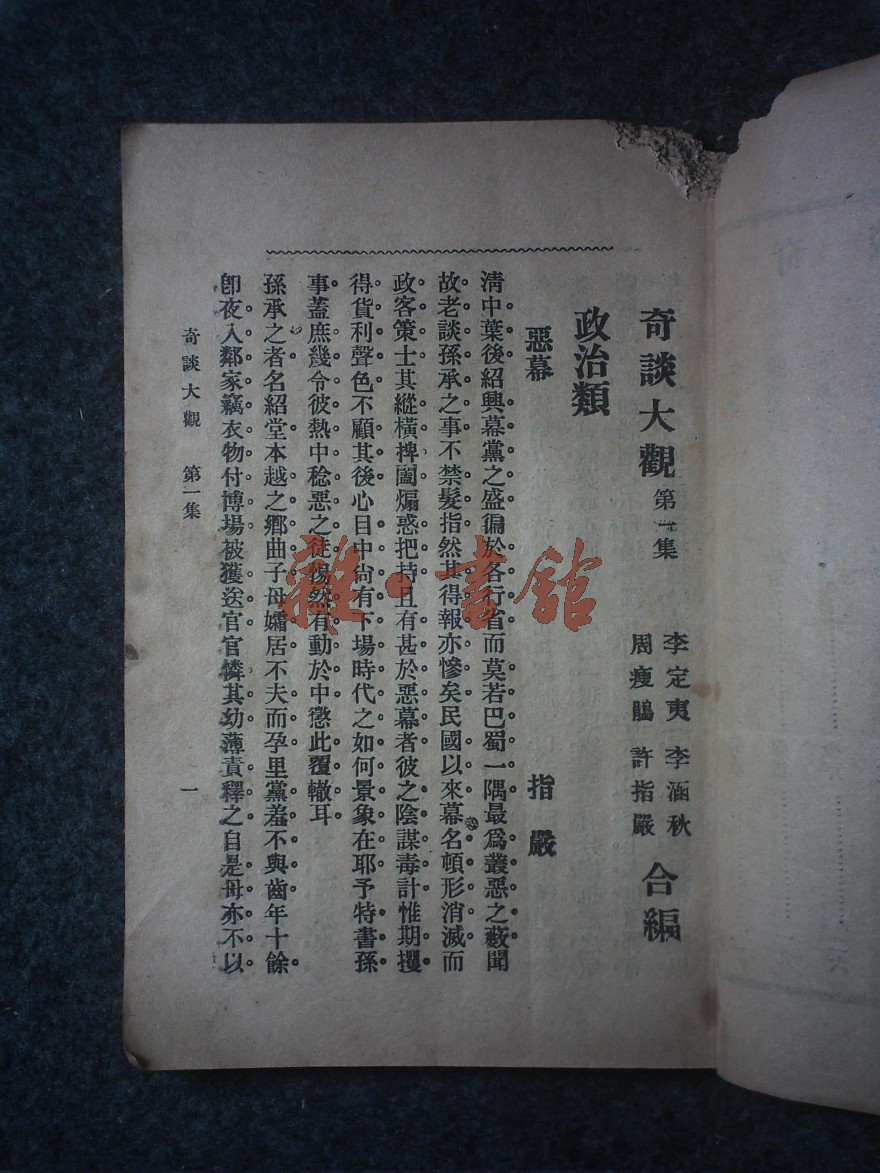 奇談大觀 第一集
李定夷 李涵秋
周瘦鵑 許指嚴
合編
政治類
惡幕 指嚴
清中葉後紹興幕黨之盛徧於各行省而莫若巴蜀一隅最爲叢惡之藪聞
故老談孫承之事不禁髮指然其得報亦慘矣民國以來幕名頓形消滅而
政客策士其縱橫捭闔煽惑把持且有甚於惡幕者彼之陰謀毒計惟期攫
得貨利聲色不顧其後心目中尙有下場時代之如何景象在耶予特書孫
事蓋庶幾令彼熱中稔惡之徒惕然有動於中懲此覆轍耳
孫承之者名紹堂本越之鄕曲子母孀居不夫而孕里黨羞不與齒年十餘
卽夜入鄰家竊衣物付博場被獲送官官憐其幼薄責釋之自是母亦不以
奇談大觀 第一集 一
雜·書館